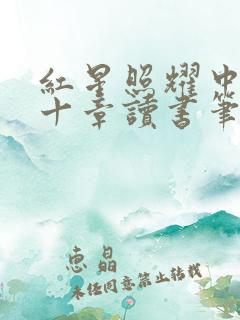 紅星照耀中
十章讀書筆
惠晶
未任同意禁止转载